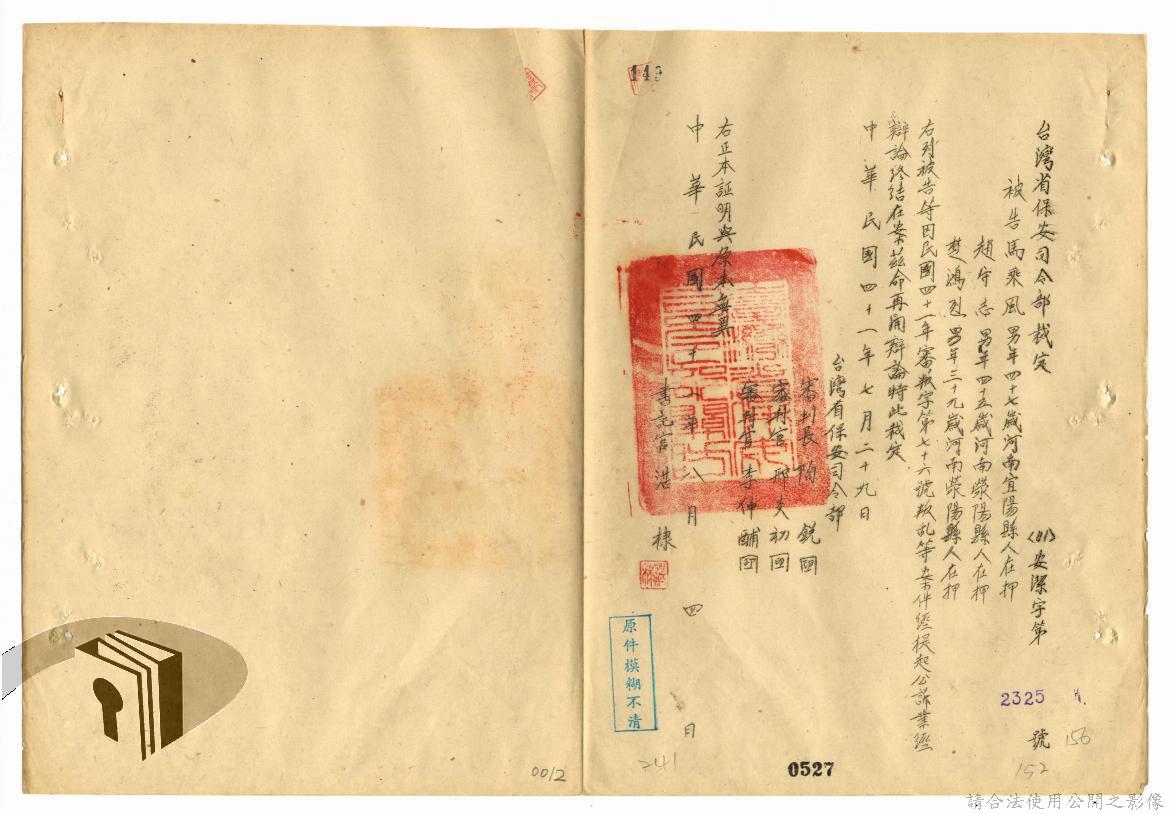 149
台灣省保安司令部裁定
(41)安潔字第
2325
號
被告馬乘風男年四十七歲河南宜陽縣人在押
趙守志男年四十五歲河南滎陽縣人在押
楚鴻烈男年三十九歲河南滎陽縣人在押
右列被告等因民國四十一年審叛字第七十六號叛乱等案件經提起公訴業經
辯論終結在案茲命再開辯論特此裁定
中華民國四十一年七月二十九日
台灣省保安司令部
審判長 銳
審判官邢炎初
審判官李仲酺
右正本証明與原本無異
中華民國四十一年八月四日
書記官湛棣
原件模糊不清
156
152
241
0527
0012
請合法使用公開之影像